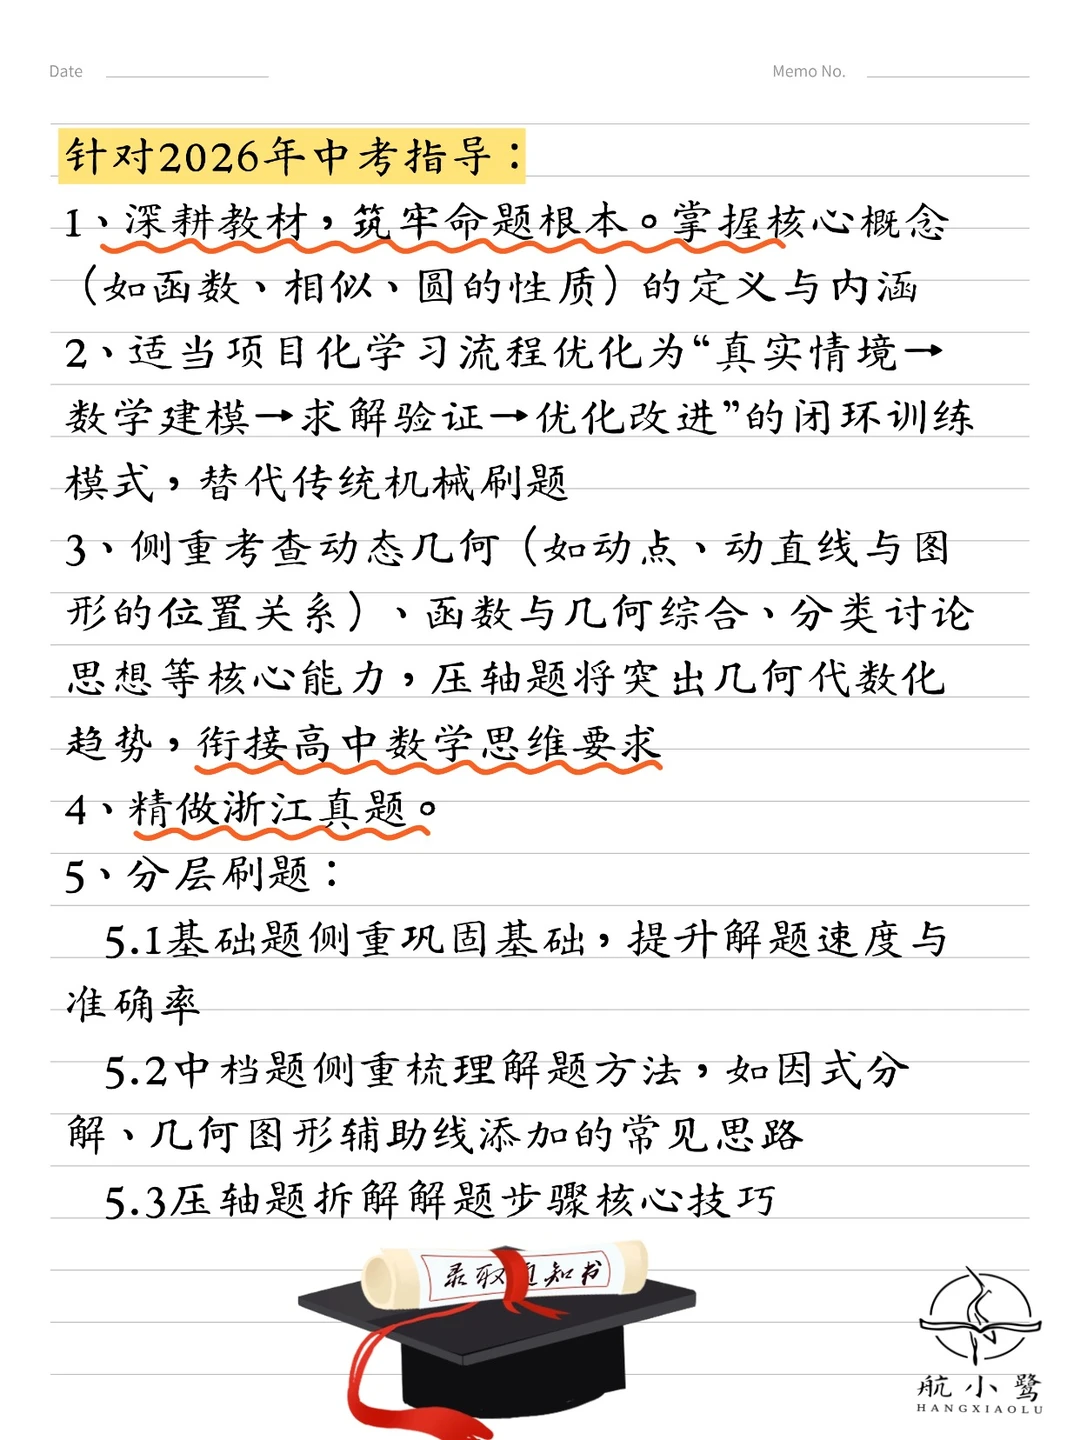 Date
Memo No.
针对2026年中考指导：
1、深耕教材，筑牢命题根本。掌握核心概念
（如函数、相似、圆的性质）的定义与内涵
2、适当项目化学习流程优化为“真实情境→
数学建模→求解验证→优化改进”的闭环训练
模式，替代传统机械刷题
3、侧重考查动态几何（如动点、动直线与图
形的位置关系）、函数与几何综合、分类讨论
思想等核心能力，压轴题将突出几何代数化
趋势，衔接高中数学思维要求
4、精做浙江真题。
5、分层刷题：
5.1基础题侧重巩固基础，提升解题速度与
准确率
5.2中档题侧重梳理解题方法，如因式分
解、几何图形辅助线添加的常见思路
5.3压轴题拆解解题步骤核心技巧
录取通知书
航小鹭
HANGXIAOLU